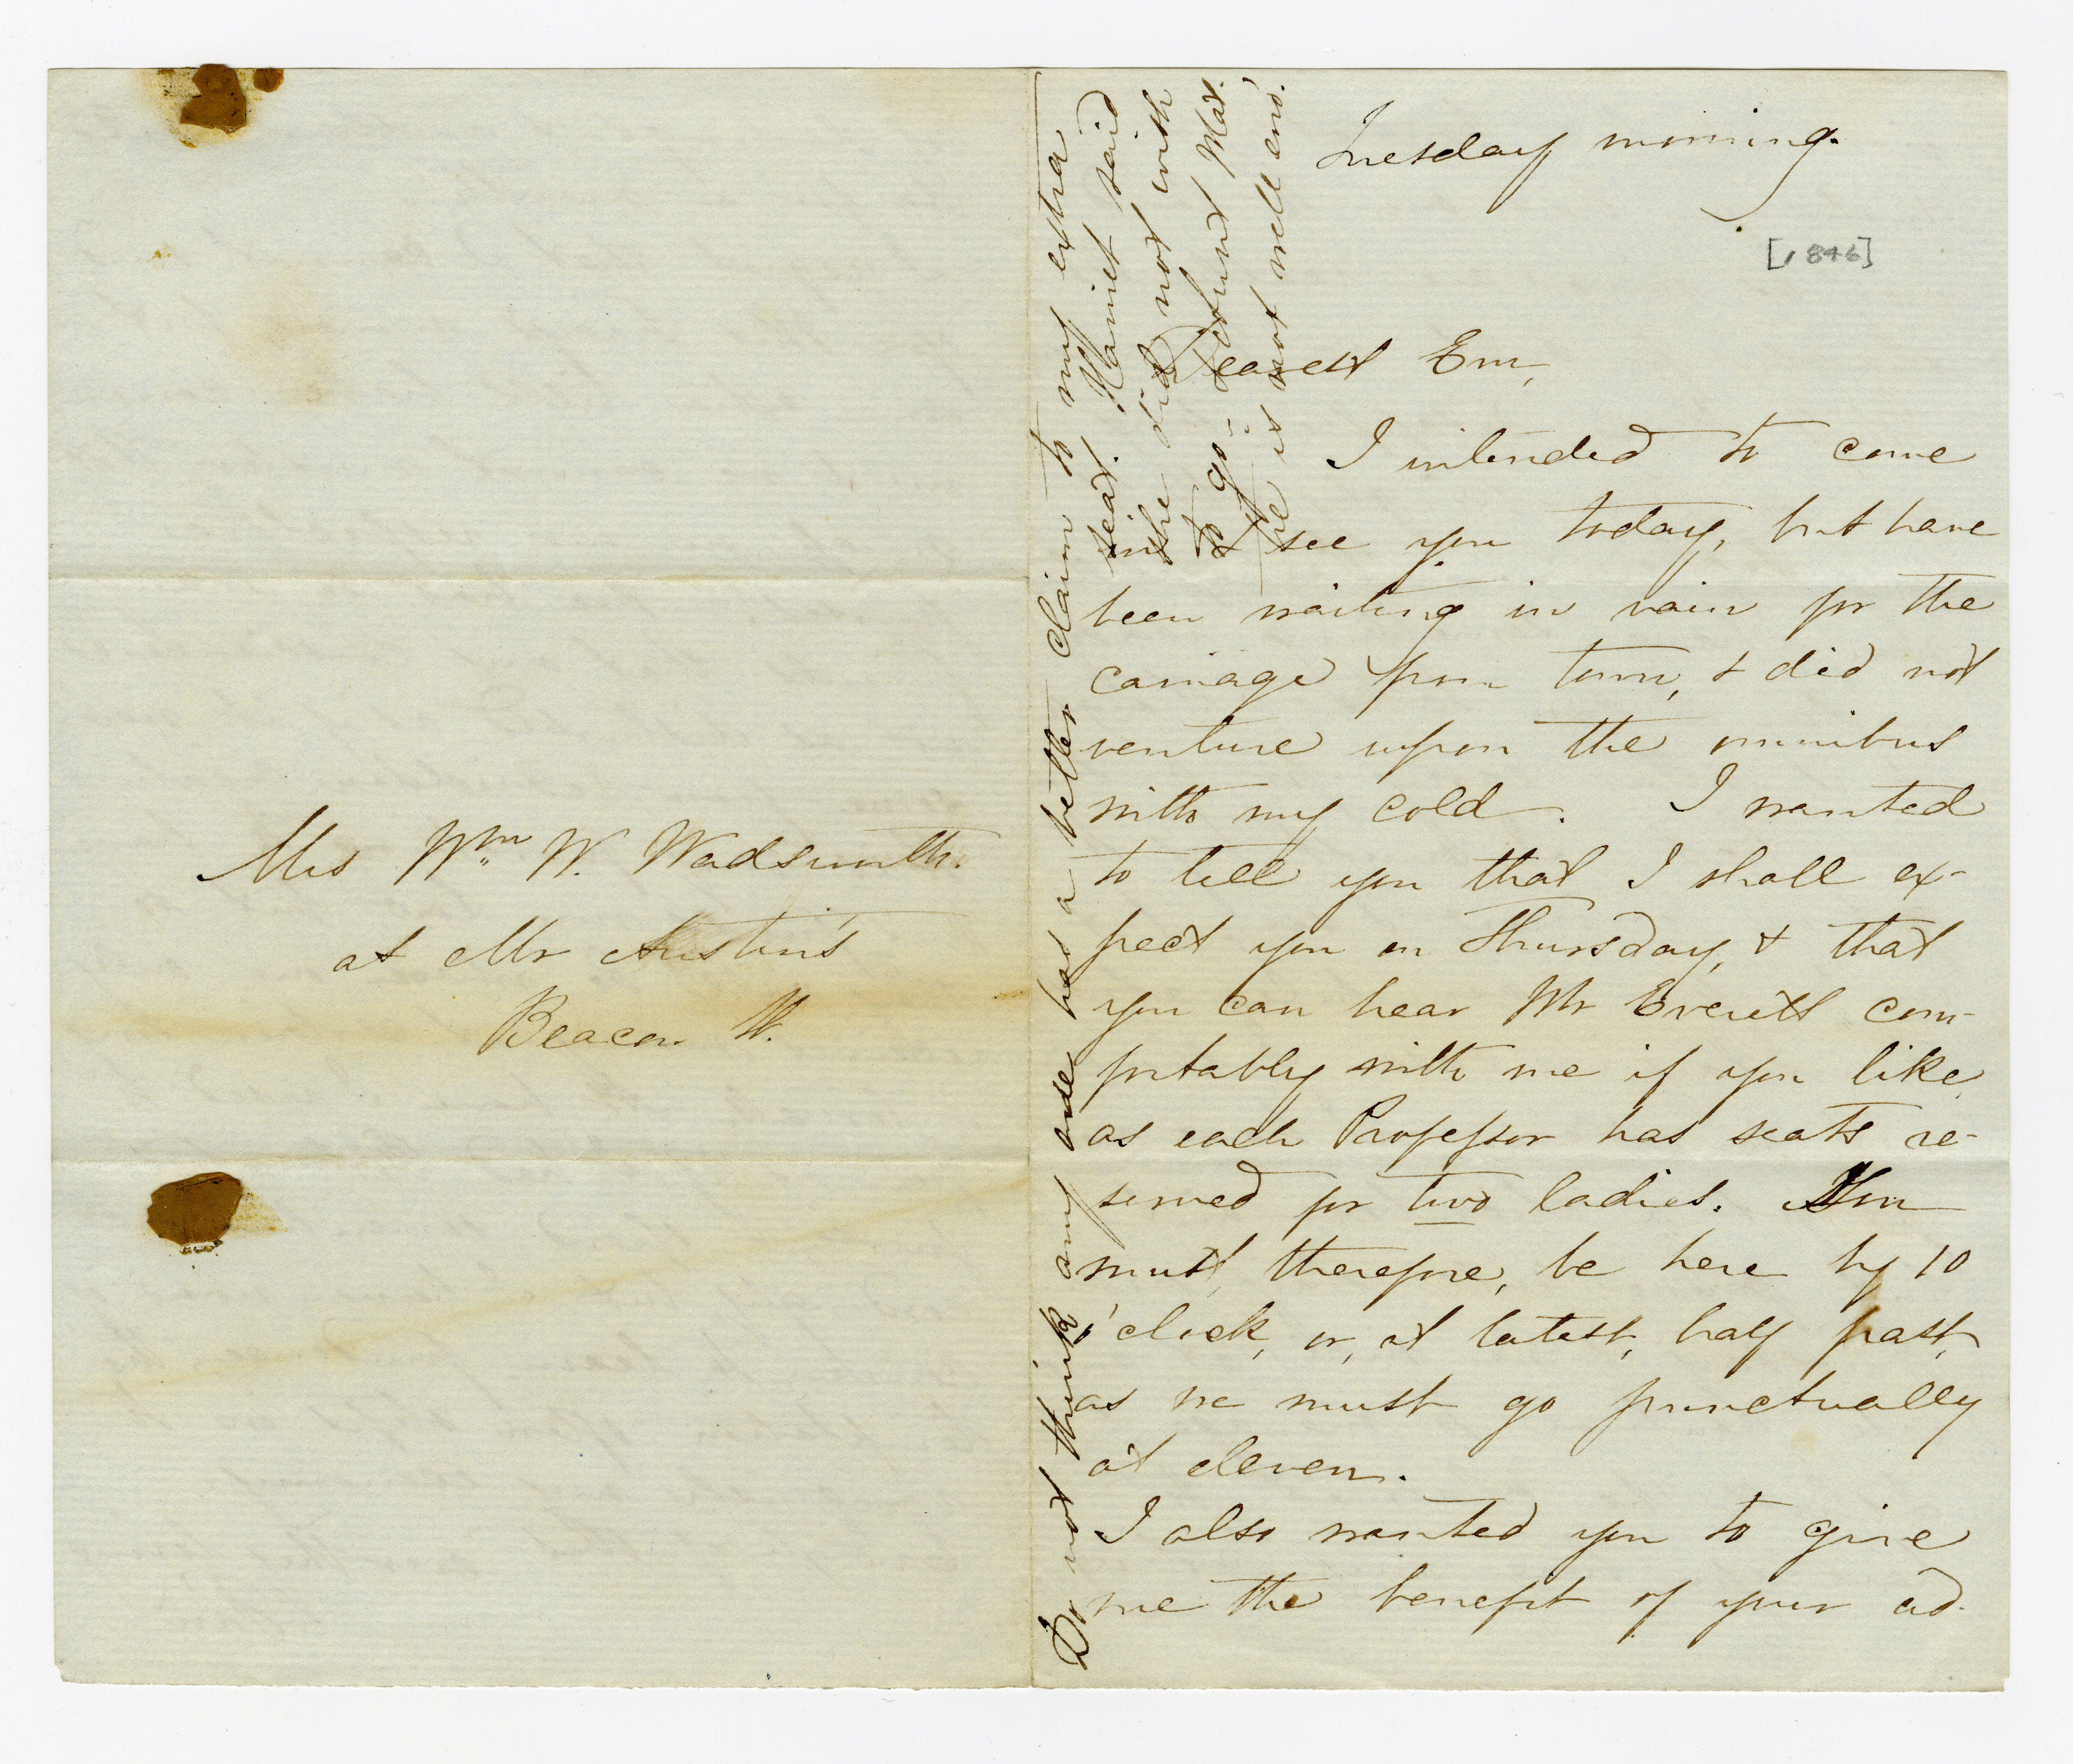 Mrs Wm. W. Wadsworth.
at Mr Austin's
Beacon St.
Tuesday morning.
[1846]
Dearest Em,
I intended to come
& see you today, but have
been waiting in vain for the
carriage from town, & did not
venture upon the omnibus
with my cold. I wanted
to tell you that I shall ex-
pect you on Thursday, & that
you can hear Mr Everett com-
fortably with me if you like,
as each Professor has seats re-
served for two ladies. You
must, therefore, be here by 10
o'clock, or, at latest, half past,
as we must go punctually
at eleven.
I also wanted you to give
me the benefit of your ad-
Do not think any one has a better claim to my extra
seat. Harriet said
she did not wish
to go - & Aunt Mat.
he is not well eno'.